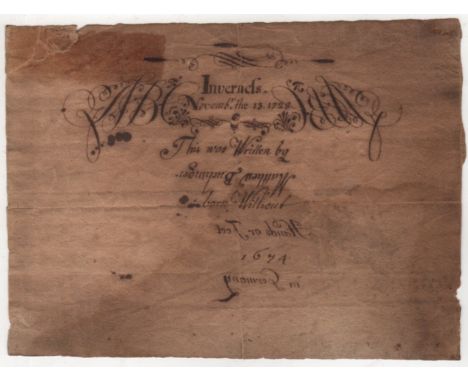 Inverness.
Novembr. the 13. 1728
This was Written by
Matthew Buchinger
born Without
Hands or Feet
1674
in Germany